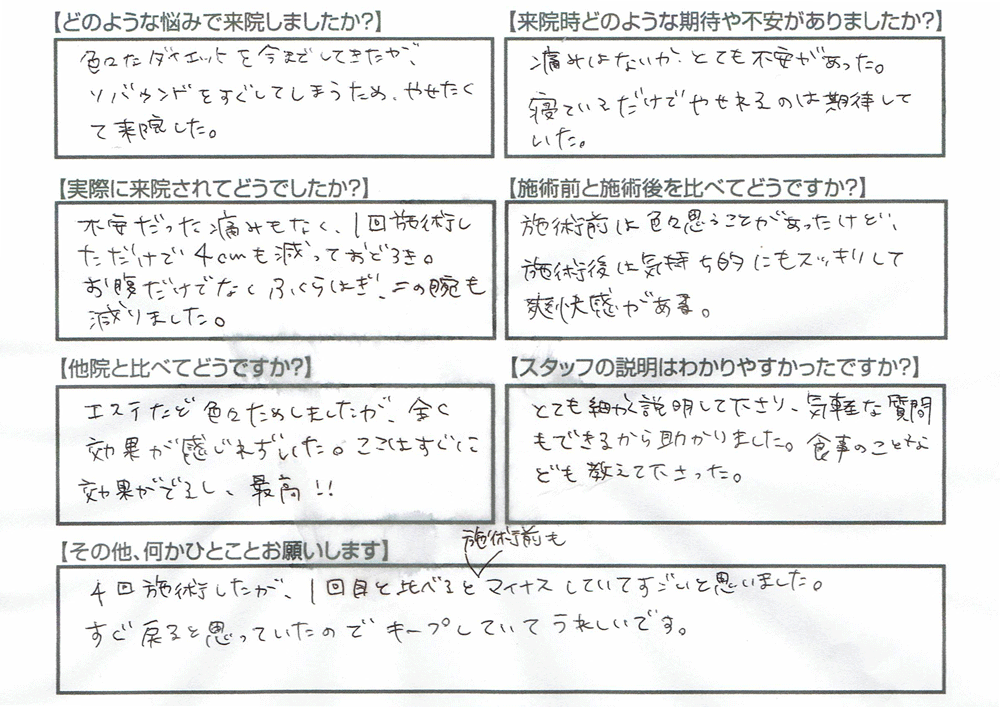 【どのような悩みで来院しましたか?】
色々なダイエットを今までしてきたが、
リバウンドをすぐしてしまうため、やせたく
て来院した。
【来院時どのような期待や不安がありましたか?】
痛みはないか、とても不安があった。
寝ているだけでやせれるのは期待して
いた。
【実際に来院されてどうでしたか?】
不安だった痛みもなく、1回施術し
ただけで4cmも減っておどろき。
お腹だけでなくふくらはぎ、二の腕も
減りました。
【施術前と施術後を比べてどうですか?】
施術前は色々思うことがあったけど、
施術後は気持ち的にもスッキリして
爽快感がある。
【他院と比べてどうですか?】
エステなど色々ためしましたが、全く
効果が感じれずでした。ここはすぐに
効果がでるし、最高!!
【スタッフの説明はわかりやすかったですか?】
とても細かく説明して下さり、気軽な質問
もできるから助かりました。食事のことな
ども教えて下さった。
【その他、何かひとことお願いします】
施術前も
4回施術したが、1回目と比べるとマイナスしていてすごいと思いました。
すぐ戻ると思っていたのでキープしていてうれしいです。